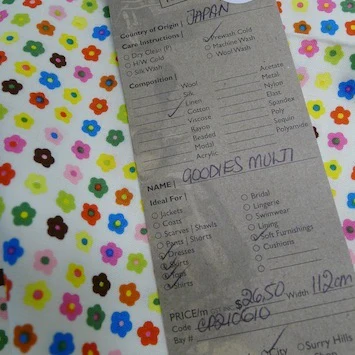 Country of Origin | JAPAN
Care Instructions |
Dry Clean (P) Prewash Cold
H/W Cold Machine Wash
Silk Wash Wool Wash
Composition |
Wool Acetate
Silk Metal
Linen Nylon
Cotton Elast
Viscose Spandex
Rayon Poly
Beaded Sequin
Modal Polyamide
Acrylic
NAME | GOODIES MULTI
Ideal For |
Jackets Bridal
Coats Lingerie
Scarves | Shawls Swimwear
Pants | Shorts Lining
Dresses Soft Furnishings
Skirts Cushions
Tops
Shirts
PRICE/m $26.50 Width 112cm
Code
Bay #
City Surry Hills